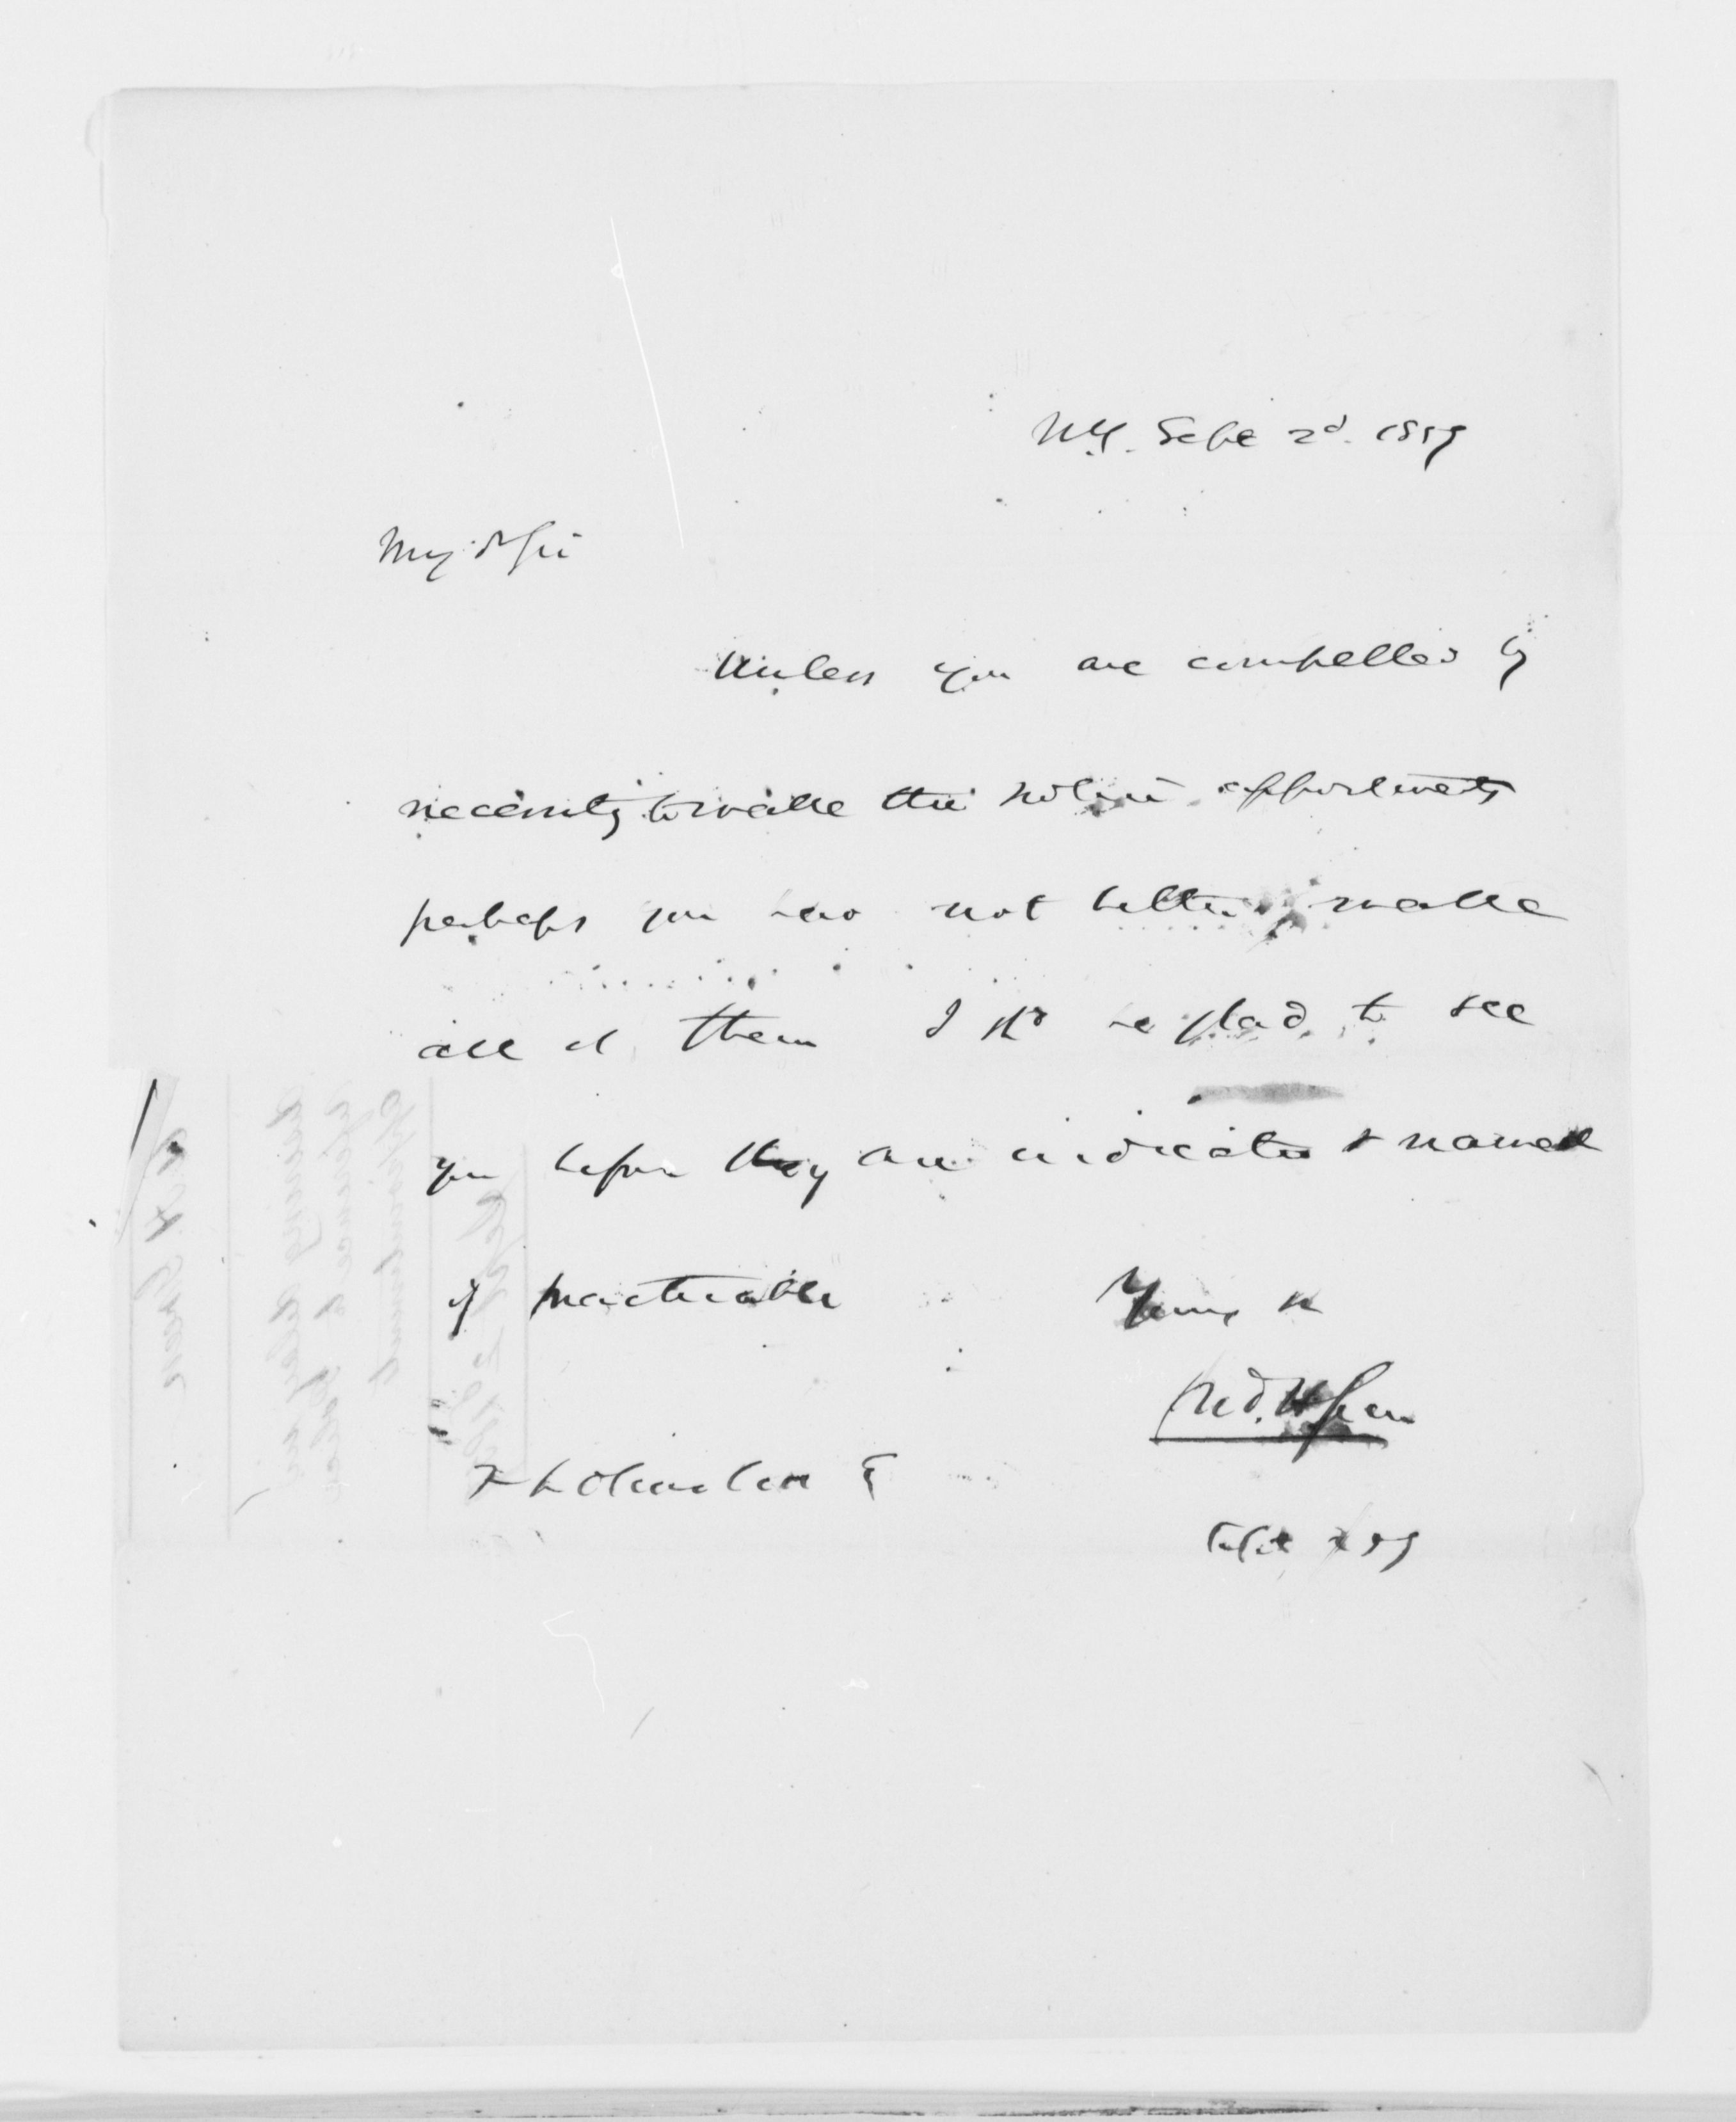 N.Y. Sept 2d. 1859
My D Sir
Unless you are compelled by
necessity to make the police appointments
perhaps you had not better make
all of them I shd be glad to see
you before they are indicated & named
if practicable Yours &c
And. H Green
F L Olmsted E
Sept 2 59